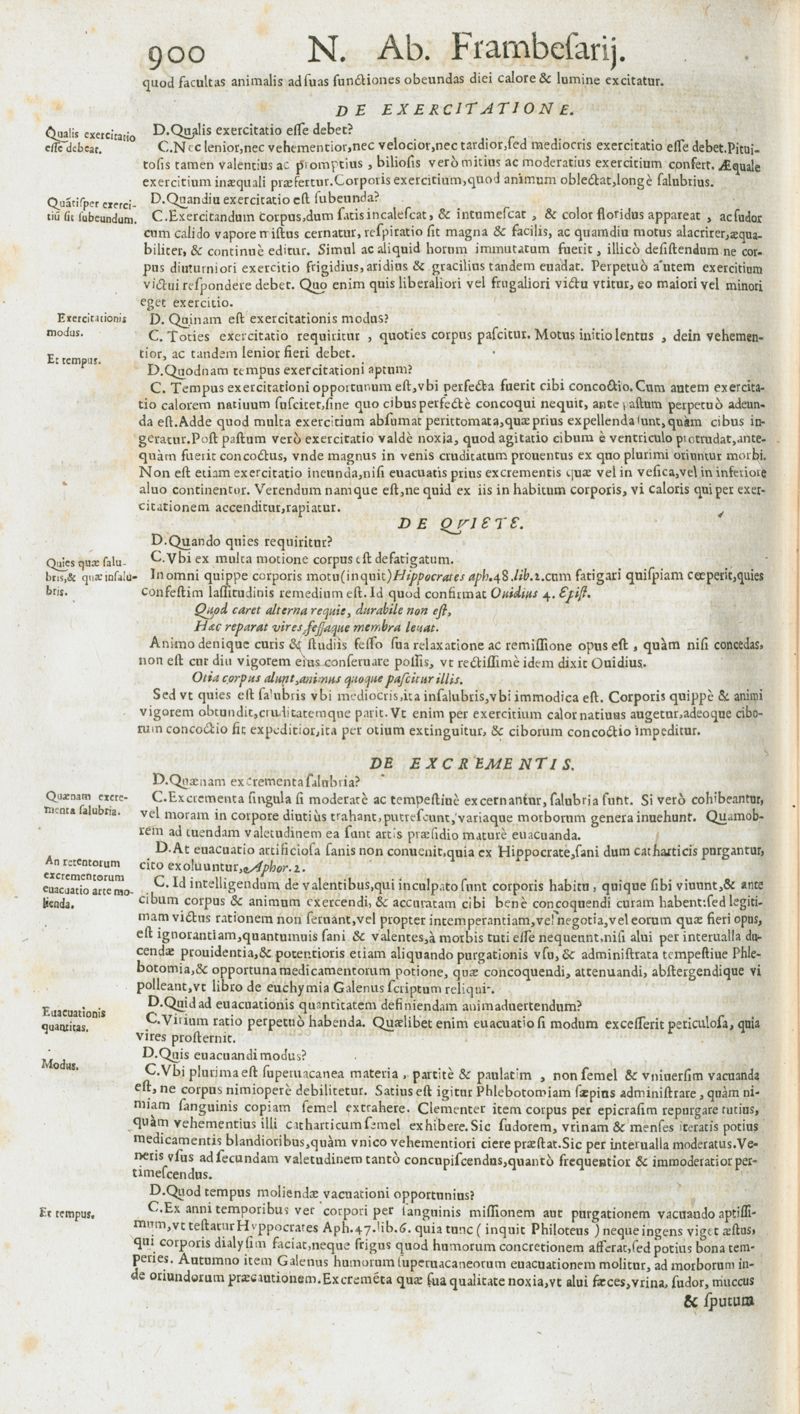 900 N. Ab. Frambeſarij.
quod facultas animalis ad ſuas functiones obeundas diei calore & lumine excitatur.
DE EXERCITATIONE.
Qualis exercitatio
eſſe debeat.
D.Qualis exercitatio eſſe debet?
C.Nec lenior,nec vehementior,nec velocior,nec tardior,ſed mediocris exercitatio eſſe debet.Pitui-
toſis tamen valentius ac promptius , bilioſis verò mitius ac moderatius exercitium confert. Æquale
exercitium inæquali præfertur.Corporis exercitium,quod animum oblectat,longè ſalubrius.
Quātiſper exerci-
tiū ſit ſubeundum.
D.Quandiu exercitatio eſt ſubeunda?
C.Exercitandum corpus,dum ſatis incaleſcat, & intumeſcat , & color floridus appareat , ac ſudor
cum calido vapore miſtus cernatur, reſpiratio ſit magna & facilis, ac quamdiu motus alacriter,æqua-
biliter, & continuè editur. Simul ac aliquid horum immutatum fuerit , illicò deſiſtendum ne cor-
pus diuturniori exercitio frigidius,aridius & gracilius tandem euadat. Perpetuò autem exercitium
victui reſpondere debet. Quo enim quis liberaliori vel frugaliori victu vtitur, eo maiori vel minori
eget exercitio.
Exercitationis
modus.
D. Quinam eſt exercitationis modus?
C. Toties exercitatio requiritur , quoties corpus paſcitur. Motus initio lentus , dein vehemen-
tior, ac tandem lenior fieri debet.
Et tempus.
D.Quodnam tempus exercitationi aptum?
C. Tempus exercitationi opportunum eſt,vbi perfecta fuerit cibi concoctio.Cum autem exercita-
tio calorem natiuum ſuſcitet,ſine quo cibus perfectè concoqui nequit, ante paſtum perpetuò adeun-
da eſt.Adde quod multa exercitium abſumat perittomata,quæ prius expellenda ſunt,quàm cibus in-
geratur.Poſt paſtum verò exercitatio valdè noxia, quod agitatio cibum è ventriculo protrudat,ante-
quàm fuerit concoctus, vnde magnus in venis cruditatum prouentus ex quo plurimi oriuntur morbi.
Non eſt etiam exercitatio ineunda,niſi euacuatis prius excrementis quæ vel in veſica,vel in inferiore
aluo continentur. Verendum namque eſt,ne quid ex iis in habitum corporis, vi caloris qui per exer-
citationem accenditur,rapiatur.
DE QVIETE.
D.Quando quies requiritur?
C.Vbi ex multa motione corpus eſt defatigatum.
Quies quæ ſalu-
bris,& quæ inſalu-
bris.
In omni quippe corporis motu(inquit)Hippocrates aph.48.lib.2.cum fatigari quiſpiam cœperit,quies
confeſtim laſſitudinis remedium eſt. Id quod confirmat Ouidius 4. Epiſt.
Quod caret alterna requie, durabile non eſt,
Hæc reparat vires,feſſaque membra leuat.
Animo denique curis & ſtudiis feſſo ſua relaxatione ac remiſſione opus eſt , quàm niſi concedas,
non eſt cur diu vigorem eius conſeruare poſſis, vt rectiſſimè idem dixit Ouidius.
Otia corpus alunt,animus quoque paſcitur illis.
Sed vt quies eſt ſalubris vbi mediocris,ita inſalubris,vbi immodica eſt. Corporis quippè & animi
vigorem obtundit,cruditatemque parit.Vt enim per exercitium calor natiuus augetur,adeoque cibo-
rum concoctio fit expeditior,ita per otium extinguitur, & ciborum concoctio impeditur.
DE EXCREMENTIS.
D.Quænam excrementa ſalubria?
Quænam excre-
menta ſalubria.
C.Excrementa ſingula ſi moderatè ac tempeſtiuè excernantur, ſalubria ſunt. Si verò cohibeantur,
vel moram in corpore diutiùs trahant,putreſcunt,variaque morborum genera inuehunt. Quamob-
rem ad tuendam valetudinem ea ſunt artis præſidio maturè euacuanda.
D.At euacuatio artificioſa ſanis non conuenit,quia ex Hippocrate,ſani dum catharticis purgantur,
cito exoluuntur,Aphor.2.
An retentorum
excrementorum
euacuatio arte mo-
lienda.
C. Id intelligendum de valentibus,qui inculpato ſunt corporis habitu , quique ſibi viuunt,& ante
cibum corpus & animum exercendi, & accuratam cibi benè concoquendi curam habent:ſed legiti-
mam victus rationem non ſeruant,vel propter intemperantiam,vel negotia,vel eorum quæ fieri opus,
eſt ignorantiam,quantumuis ſani & valentes,à morbis tuti eſſe nequeunt,niſi alui per interualla du-
cendæ prouidentia,& potentioris etiam aliquando purgationis vſu, & adminiſtrata tempeſtiue Phle-
botomia,& opportuna medicamentorum potione, quæ concoquendi, attenuandi, abſtergendique vi
polleant,vt libro de euchymia Galenus ſcriptum reliquit.
Euacuationis
quantitas.
D.Quid ad euacuationis quantitatem definiendam animaduertendum?
C.Virium ratio perpetuò habenda. Quælibet enim euacuatio ſi modum exceſſerit periculoſa, quia
vires proſternit.
Modus.
D.Quis euacuandi modus?
C.Vbi plurima eſt ſuperuacanea materia , partitè & paulatim , non ſemel & vniuerſim vacuanda
eſt, ne corpus nimioperè debilitetur. Satius eſt igitur Phlebotomiam ſæpius adminiſtrare , quàm ni-
miam ſanguinis copiam ſemel extrahere. Clementer item corpus per epicraſim repurgare tutius,
quàm vehementius illi catharticum ſemel exhibere.Sic ſudorem, vrinam & menſes iteratis potius
medicamentis blandioribus,quàm vnico vehementiori ciere præſtat.Sic per interualla moderatus.Ve-
neris vſus ad ſecundam valetudinem tantò concupiſcendus,quantò frequentior & immoderatior per-
timeſcendus.
D.Quod tempus moliendæ vacuationi opportunius?
Et tempus.
C.Ex anni temporibus ver corpori per ſanguinis miſſionem aut purgationem vacuando aptiſſi-
mum,vt teſtatur Hyppocrates Aph.47.lib.6. quia tunc ( inquit Philoteus ) neque ingens viget æſtus,
qui corporis dialyſim faciat,neque frigus quod humorum concretionem afferat,ſed potius bona tem-
peries. Autumno item Galenus humorum ſuperuacaneorum euacuationem molitur, ad morborum in-
de oriundorum præcautionem.Excremēta quæ ſua qualitate noxia,vt alui fæces,vrina, ſudor, muccus
& ſputum